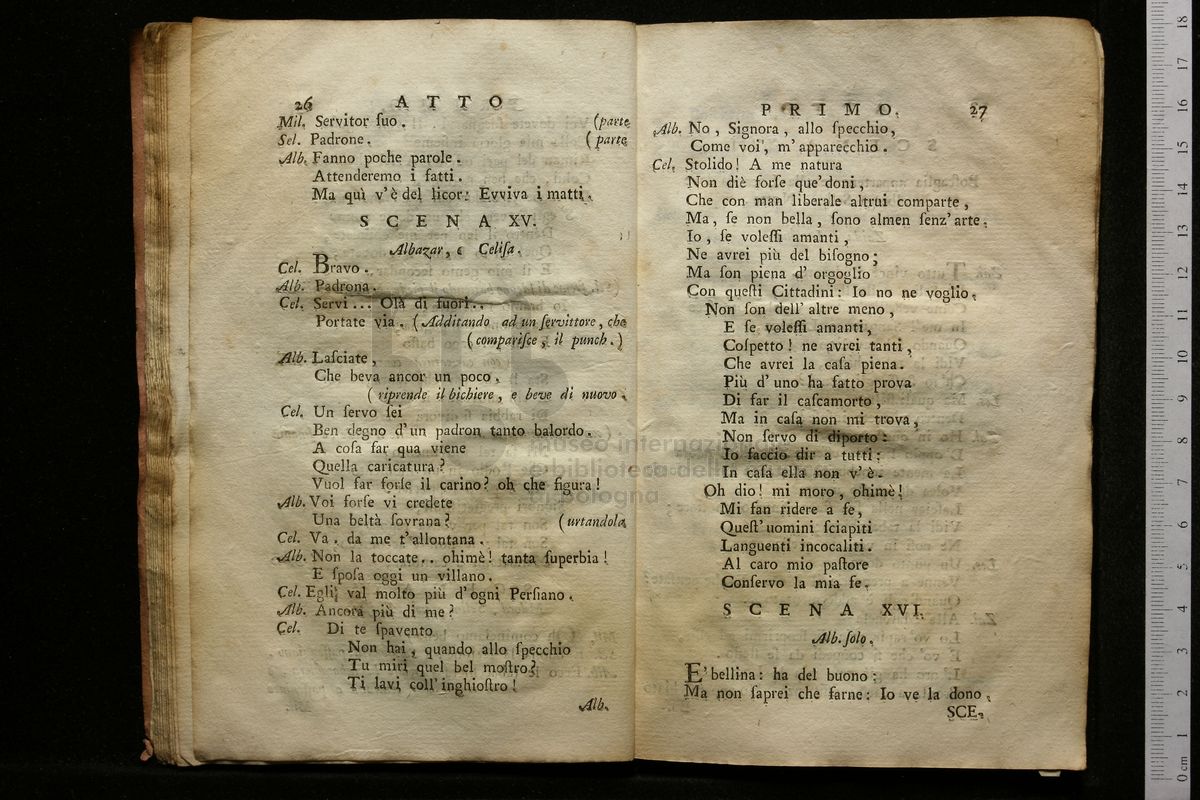 26 ATTO
Mil. Servitor ſuo. (parte
Sel. Padrone. (parte
Alb. Fanno poche parole.
Attenderemo i fatti.
Ma quì v'è del licor: Evviva i matti.
SCENA XV.
Albazar, e Celiſa.
Cel. Bravo.
Alb. Padrona.
Cel. Servi... Olà di fuori..
Portate via. (Additando ad un ſervittore, che
(compariſce, il punch.)
Alb. Laſciate,
Che beva ancor un poco.
(riprende il bichiere, e beve di nuovo.
Cel. Un ſervo ſei
Ben degno d'un padron tanto balordo.
A coſa far qua viene
Quella caricatura?
Vuol far forſe il carino? oh che figura!
Alb. Voi forſe vi credete
Una beltà ſovrana? (urtandola
Cel. Va. da me t'allontana.
Alb. Non la toccate.. ohimè! tanta ſuperbia!
E ſpoſa oggi un villano.
Cel. Egli val molto più d'ogni Perſiano.
Alb. Ancora più di me?
Cel. Di te ſpavento
Non hai, quando allo ſpecchio
Tu miri quel bel moſtro?
Ti lavi coll'inghioſtro!
Alb.
PRIMO. 27
Alb. No, Signora, allo ſpecchio,
Come voi, m'apparecchio.
Cel. Stolido! A me natura
Non diè forſe que' doni,
Che con man liberale altrui comparte,
Ma, ſe non bella, ſono almen ſenz'arte.
Io, ſe voleſſi amanti,
Ne avrei più del biſogno;
Ma ſon piena d'orgoglio
Con queſti Cittadini: Io no ne voglio.
Non ſon dell'altre meno,
E ſe voleſſi amanti,
Coſpetto! ne avrei tanti,
Che avrei la caſa piena.
Più d'uno ha fatto prova
Di far il caſcamorto,
Ma in caſa non mi trova,
Non ſervo di diporto:
Io faccio dir a tutti:
In caſa ella non v'è.
Oh dio! mi moro, ohimè!
Mi fan ridere a fe,
Queſt'uomini ſciapiti
Languenti incocaliti.
Al caro mio paſtore
Conſervo la mia fe.
SCENA XVI.
Alb. ſolo.
E' bellina: ha del buono:
Ma non ſaprei che farne: Io ve la dono.
SCE.
museo internazionale
e biblioteca della
di bologna
0 cm 1 2 3 4 5 6 7 8 9 10 11 12 13 14 15 16 17 18